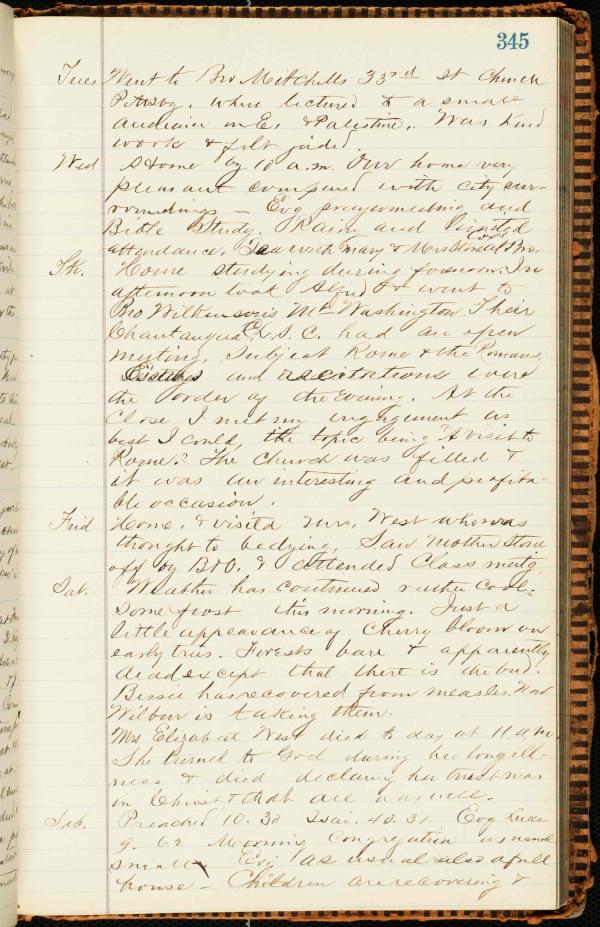 345
Tues Went to Bro Mitchells 33rd St Church
Pittsbg. when lectured to a small
audience on E. & Palestine. Was hard
work & felt jaded.
Wed Home by 10 a.m. Our home very
pleasant compared with city sur-
roundings — Evg prayermeeting and
Bible Study. Rainy and limited
attendance. Tea with Mary & Mrs Stone at Bro.
Th. Home studying during forenoon. In
afternoon took Alfred & went to
Bro Wilkinson's Mt Washington. Their
Chautauqua L. S. C. had an open
meeting. Subject Rome & the Romans,
and recitations were
the order of the Evening. At the
Close I met my engagement as
best I could, the topic being "A visit to
Rome". The Church was filled &
it was an interesting and profita-
ble occasion.
Frid Home. & visited Mrs. West who was
thought to be dying. Saw Mother Stone
off by B&O. & attended Class meetg.
Sat. Weather has continued rather cool.
Some frost this morning. Just a
little appearance of Cherry bloom on
early trees. Forests bare & apparently
dead except that there is the bud.
Bessie has recovered from measles. Now
Wilbur is taking them.
Mrs Elizabeth West died to day at 11 a.m.
She turned to God during her long ill-
ness & died declaring her trust was
in Christ & that all was well.
Sab. Preached 10.30 Isai. 40.31. Evg Luke
9. 62 Morning Congregation usual
small Evg as usual also a full
house — Children are recovering &